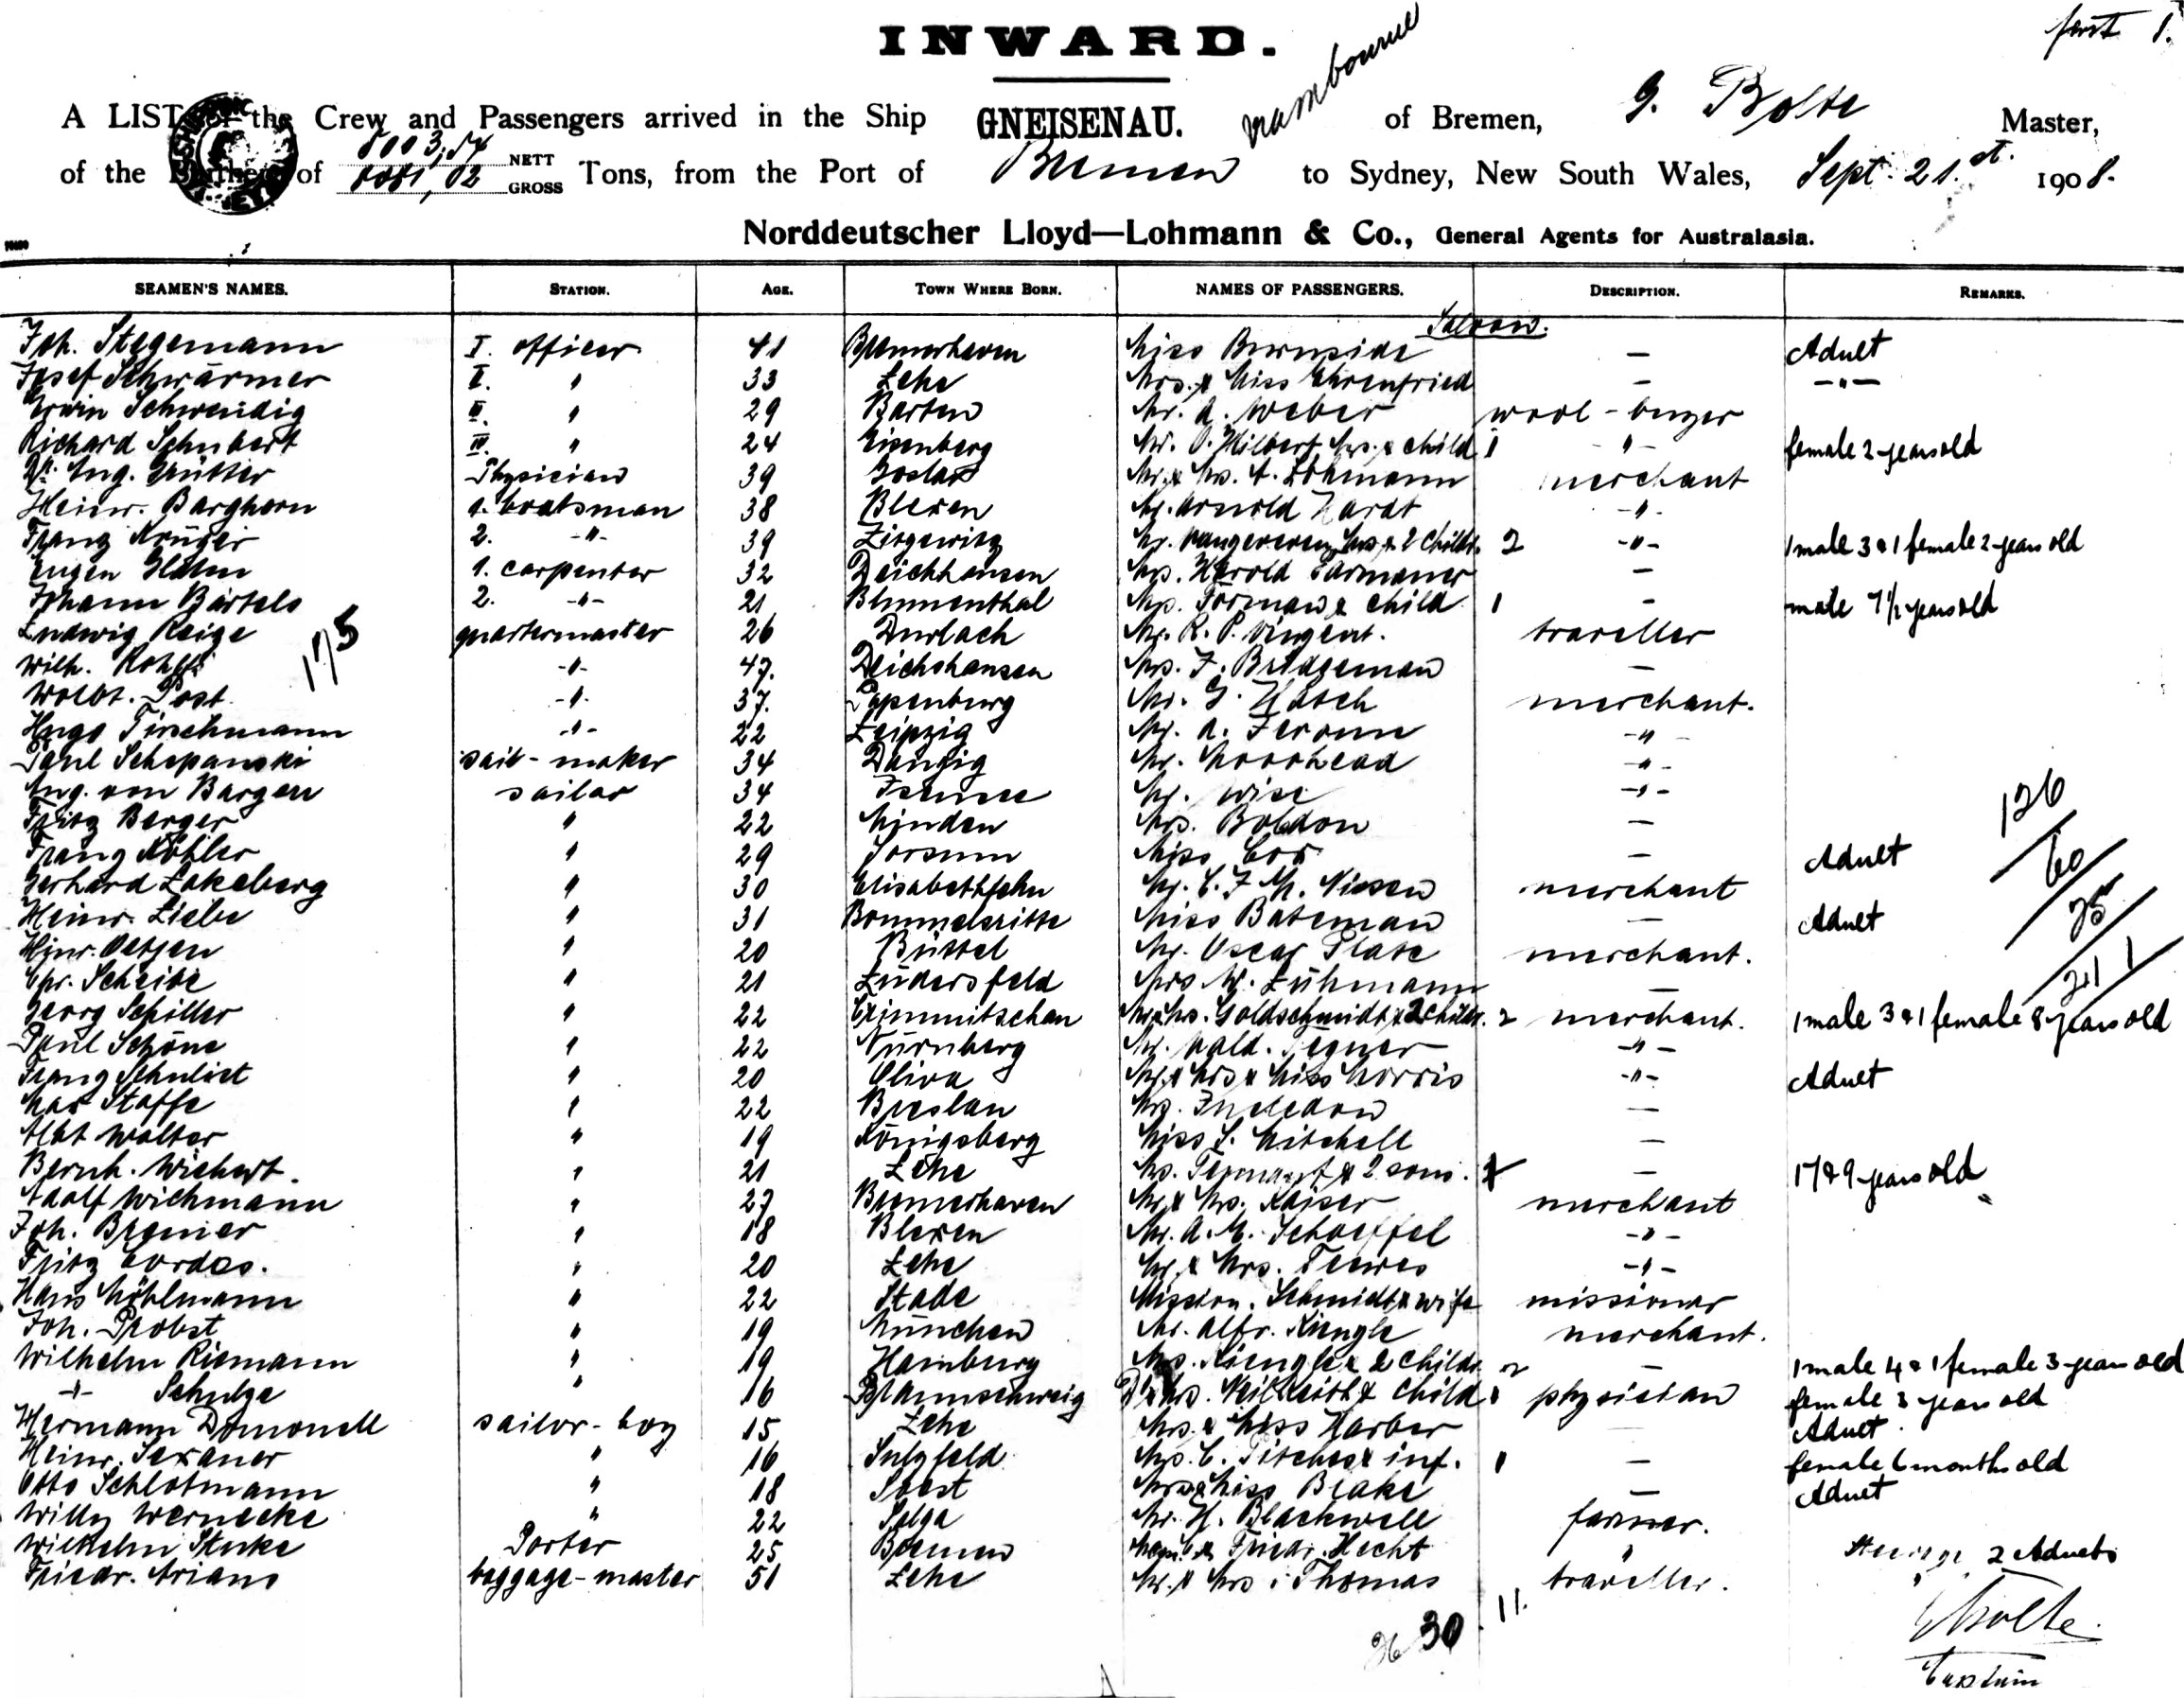 INWARD.
part 1.
A LIST of the Crew and Passengers arrived in the Ship GNEISENAU. of Bremen, G. Bolte Master,
8003,54 NETT
of the Burthen of 8081,02 GROSS Tons, from the Port of Bremen to Sydney, New South Wales, Sept. 21.st. 1908.
Norddeutscher Lloyd—Lohmann & Co., General Agents for Australasia.
SEAMEN'S NAMES. STATION. AGE. TOWN WHERE BORN. NAMES OF PASSENGERS. DESCRIPTION. REMARKS.
Saloon.
Joh. Stegemann I. officer 41 Bremerhaven Miss Burnside — Adult
Josef Schwärmer II. " 33 Lehe Mrs. & Miss Ehrenfried — -"-
Erwin Schweidig III. " 29 Barten Mr. A. Weber wool-buyer
Richard Schubert IV. " 24 Eisenberg Mr. O. Hilbert, Mrs. & child 1 -"- female 2 years old
Dr. Aug. Grütter Physician 39 Goslar Mr. & Mrs. A. Lohmann merchant
Heinr. Barghorn 1. boatsman 38 Blexen Mr. Arnold Hardt -"-
Franz Krüger 2. -"- 39 Zitzewitz Mr. Mrs. & 2 childr. 2 -"- 1 male 3 & 1 female 2 years old
Eugen Glahn 1. carpenter 32 Deichhausen Mrs. Harold —
Johann Bartels 2. -"- 21 Blumenthal Mrs. Forman & child 1 - male 7 1/2 years old
Ludwig Reige quartermaster 26 Durlach Mr. R. P. Vincent. traveller
175
Wilh. Rohlfs -"- 47. Deichshausen Mrs. F. Bridgeman —
Wolbt. Post -"- 37. Papenburg Mr. G. Hatch merchant.
Hugo Tirschmann -"- 22 Leipzig Mr. A. Jerome -"-
Paul Schepanski sail-maker 34 Danzig Mr. Moorhead -"-
Aug. von Bargen sailor 34 Isensee Mr. Wise -"-
Fritz Berger " 22 Minden Mrs. Boldon —
126
Franz Köhler " 29 Sorsum Miss Cox — Adult
60
Gerhard Lakeberg " 30 Elisabethfehn Mr. C. F. M. Nissen merchant
25
Heinr. Liebe " 31 Bommelsitte Miss Bateman — Adult
Hinr. Oetjen " 20 Büttel Mr. Oscar Plate merchant.
211
Chr. Scheibe " 21 Lüdersfeld Mrs. M. Lühmann —
Georg Schiller " 22 Crimmitschau Mr. & Mrs. Goldschmidt & 2 childr. 2 merchant. 1 male 3 & 1 female 8 years old
Paul Schöne " 22 Nürnberg Mr. Wald. Tegner -"-
Franz Schulist " 20 Oliva Mr. & Mrs. & Miss Morris -"- Adult
Max Staffe " 22 Breslau Mrs. Incledon —
Albt Walter " 19 Königsberg Miss S. Mitchell —
Bernh. Wichert. " 21 Lehe Mrs. Tennant & 2 sons. — 17 & 9 years old
Adolf Wichmann " 27 Bremerhaven Mr. & Mrs. Kaiser merchant
Joh. Bremer " 18 Blexen Mr. A. M. Schoeffel -"-
Fritz Cordes. " 20 Lehe Mr. & Mrs. Teewes -"-
Hans Möhlmann " 22 Stade Mission. Schmidt & wife missionar
Joh. Probst " 19 München Mr. Alfr. Küngle merchant.
Wilhelm Riemann " 19 Hamburg Mrs. Küngle & 2 childr. 2 — 1 male 4 & 1 female 3 years old
-"- Schulze " 16 Braunschweig Dr. & Mrs. & child 1 physician female 3 years old
Hermann Domonell sailor-boy 15 Lehe Mrs. & Miss Harber Adult.
Heinr. Sexauer " 16 Sulzfeld Mrs. C. Pitcher & inf. 1 — female 6 months old
Otto Schlotmann " 18 Soest Mrs. & Miss Blake — Adult
Willy Wernecke " 22 Mr. H. Blackwell farmer.
Wilhelm Stuke Porter 25 Bremen Friedr. Hecht " steerage 2 Adults
Friedr. Arians baggage-master 51 Lehe Mr. & Mrs. Thomas traveller.
11.
26 30
G Bolte.
Captain